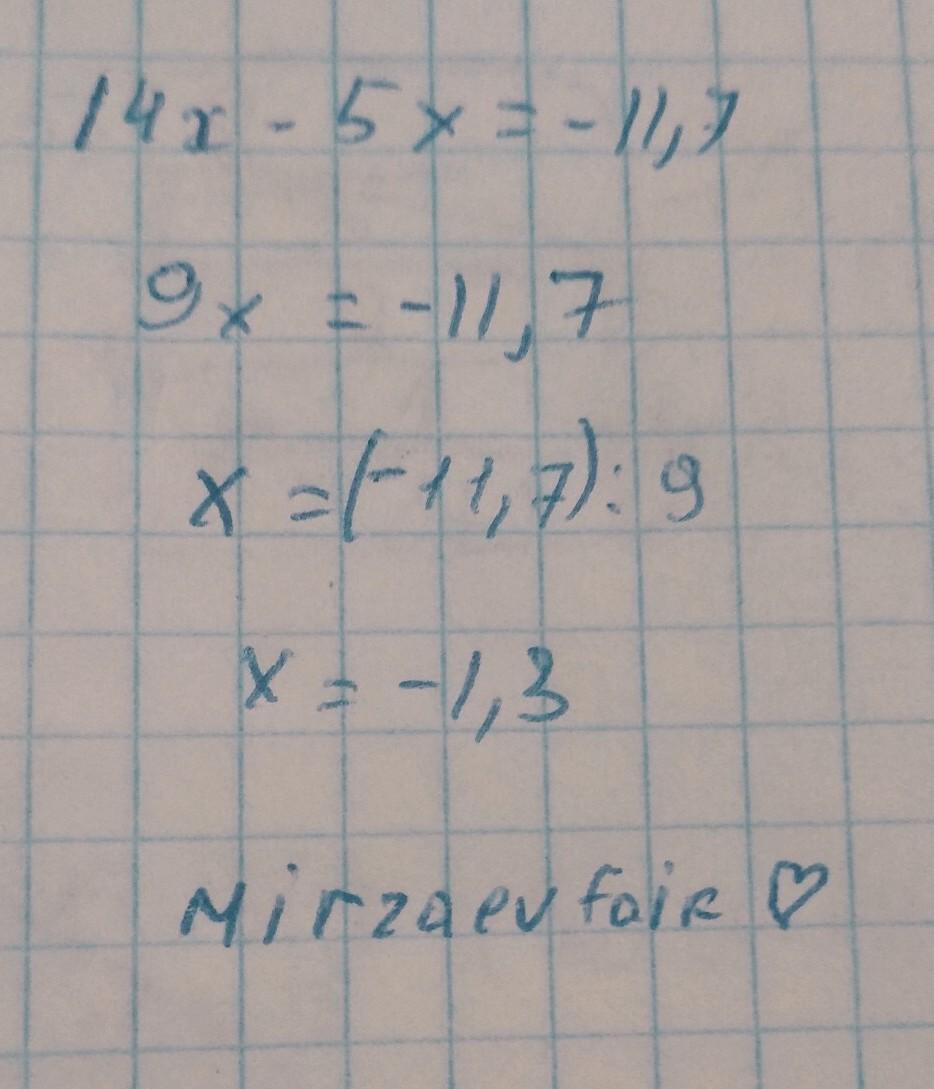 14x - 5x = -11,7
9x = -11,7
x = (-11,7) : 9
x = -1,3
Mirzaev faik ♡